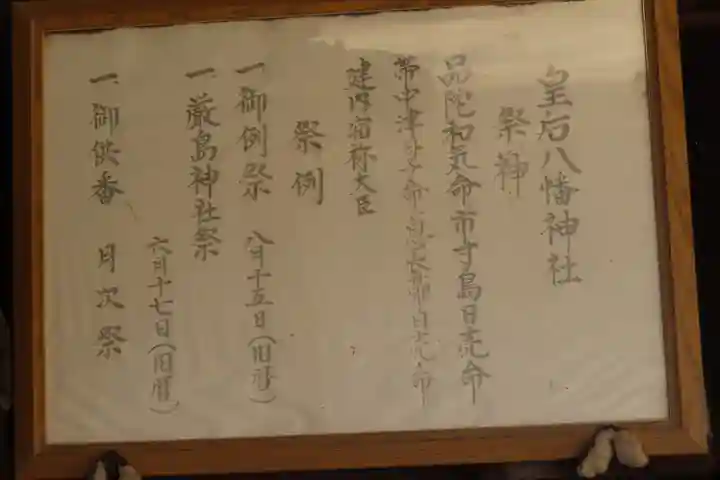 皇后八幡神社
祭神
品陀和気命市寸島日売命
帯中津日子命息長帯日売命
建内宿祢大臣
祭例
一、御例祭 八月十五日(旧暦)
一、厳島神社祭
六月十七日(旧暦)
一、御供番 月次祭